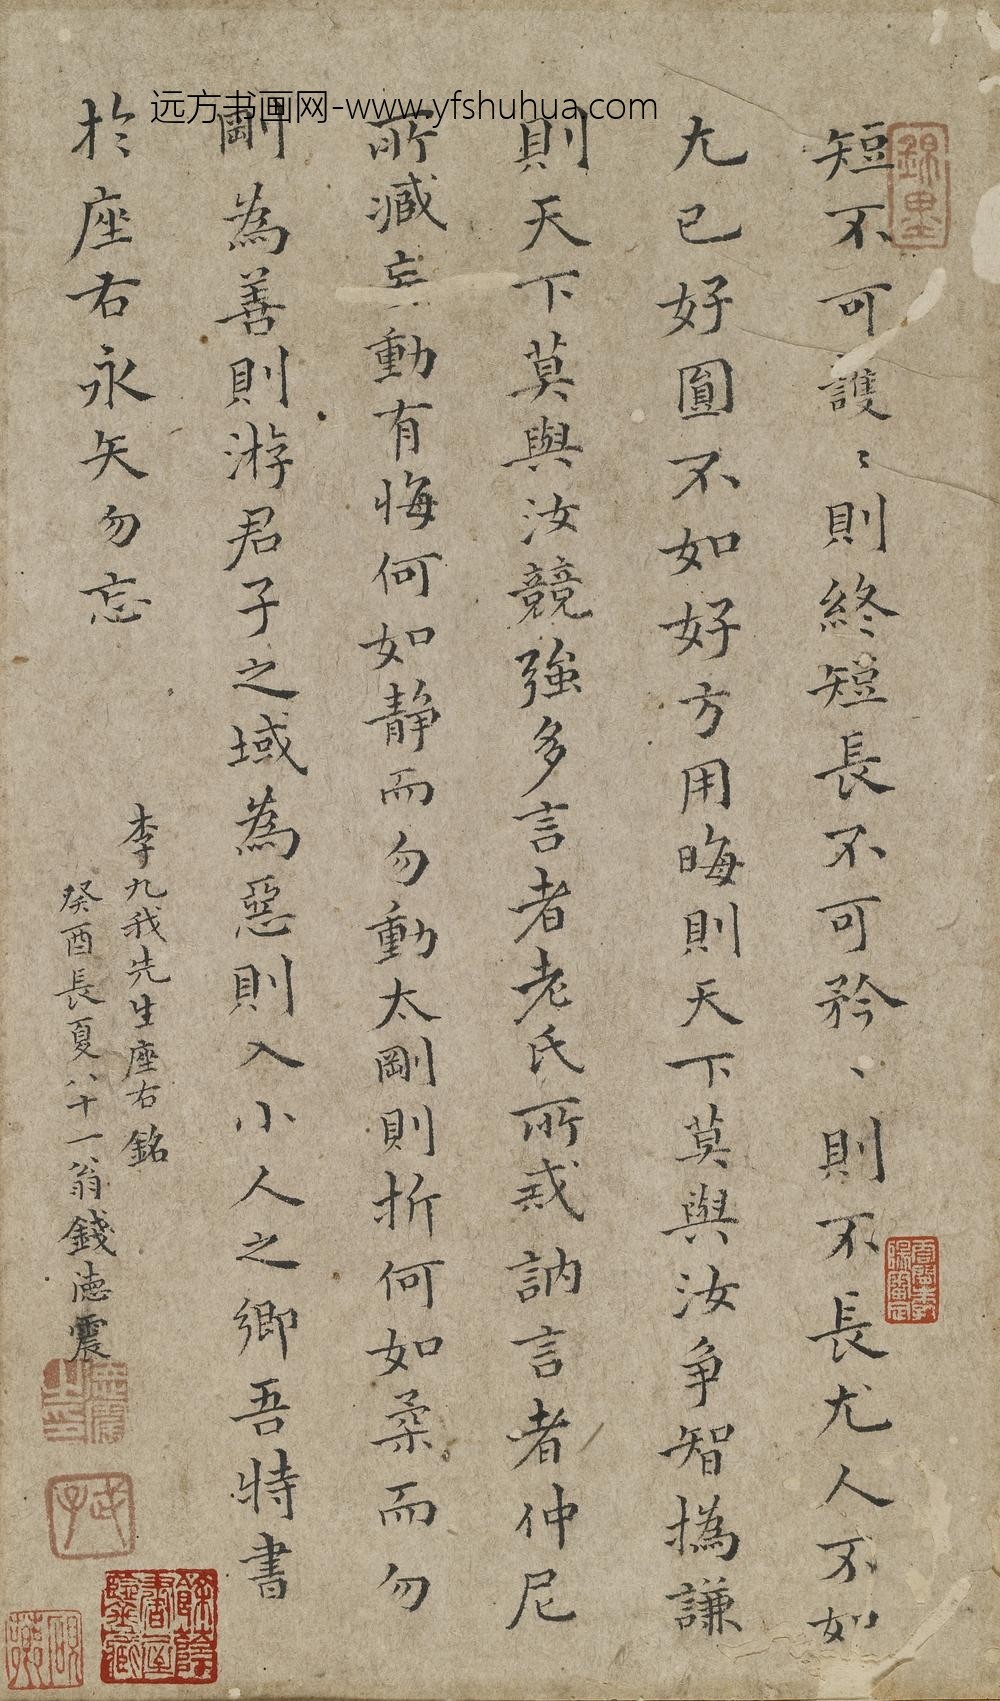 远方书画网-www.yfshuhua.com
短不可護〻則終短長不可矜〻則不長尤人不如
尤己好圓不如好方用晦則天下莫與汝争智撝謙
則天下莫與汝競強多言者老氏所戒訥言者仲尼
所臧妄動有悔何如靜而勿動太剛則折何如柔而勿
剛為善則游君子之域為惡則入小人之鄉吾特書
於座右永矢勿忘
李九我先生座右銘
癸酉長夏八十一翁錢德震